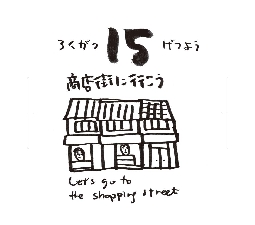 ろくがつ 15 げつよう
商店街に行こう
Let's go to
the shopping street